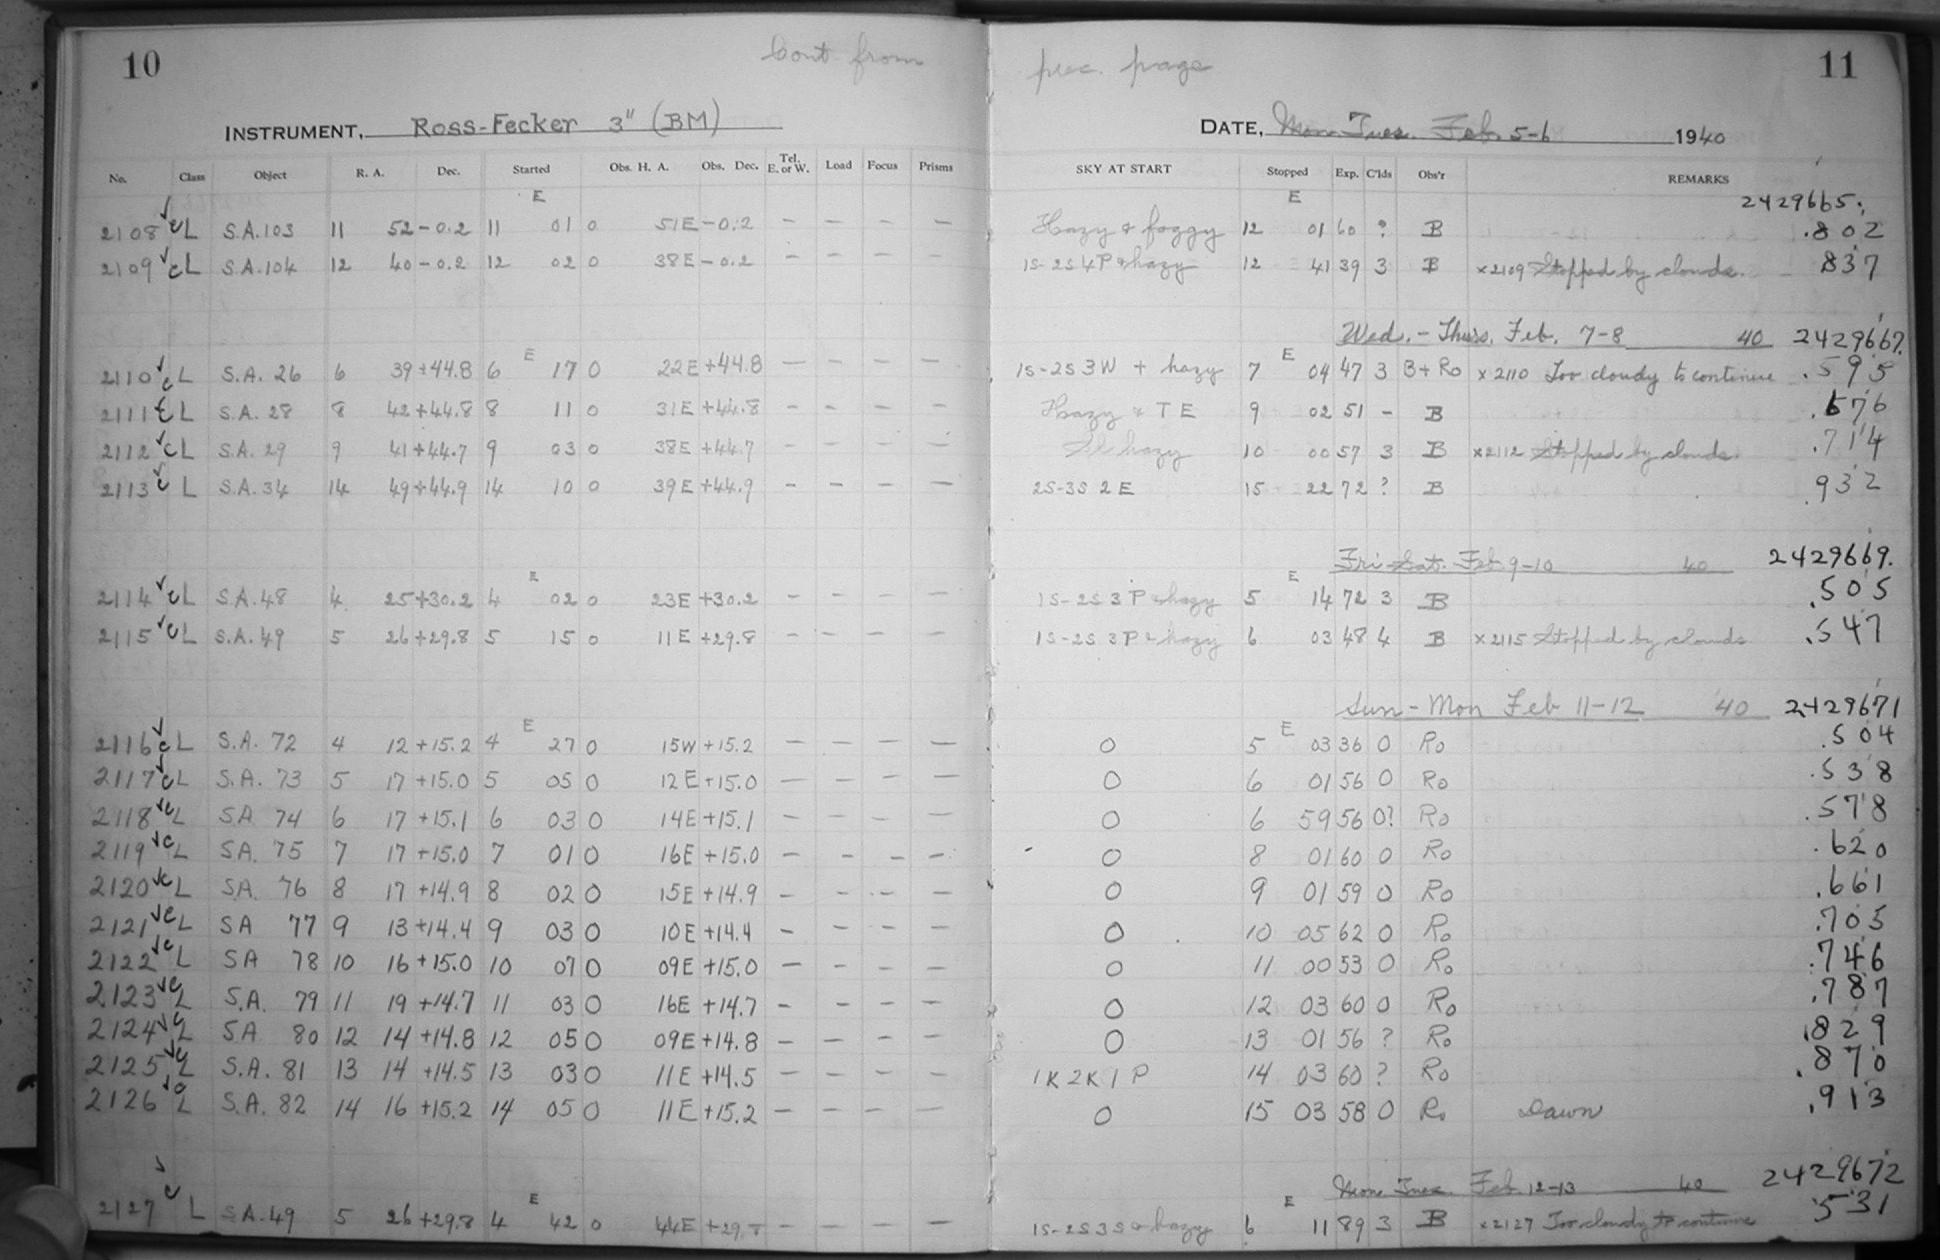 10 Cont from prec. page 11
INSTRUMENT, Ross-Fecker 3" (BM) DATE, Mon-Tues. Feb. 5-6 1940
No. Class Object R. A. Dec. Started Obs. H. A. Obs. Dec. Tel. E. or W. Load Focus Prisms SKY AT START Stopped Exp. C'lds Obs'r REMARKS
E E 2429665.
2108 c L S.A.103 11 52 -0.2 11 01 0 51E -0.2 - - - - Hazy & foggy 12 01 60 ? B .802
2109 c L S.A.104 12 40 -0.2 12 02 0 38E -0.2 - - - - 1S-2S 4P & hazy 12 41 39 3 B x2109 Stopped by clouds. .837
Wed. - Thurs. Feb. 7-8 40 2429667.
E E
2110 c L S.A. 26 6 39 +44.8 6 17 0 22E +44.8 - - - - 1S-2S 3W + hazy 7 04 47 3 B+Ro x2110 Too cloudy to continue .595
2111 c L S.A. 28 8 42 +44.8 8 11 0 31E +44.8 - - - - Hazy & T E 9 02 51 - B .676
2112 c L S.A. 29 9 41 +44.7 9 03 0 38E +44.7 - - - - Sl hazy 10 00 57 3 B x2112 Stopped by clouds. .714
2113 c L S.A. 34 14 49 +44.9 14 10 0 39E +44.9 - - - - 2S-3S 2E 15 22 72 ? B .932
Fri-Sat. Feb 9-10 40 2429669.
E E
2114 c L S.A. 48 4 25 +30.2 4 02 0 23E +30.2 - - - - 1S-2S 3P & hazy 5 14 72 3 B .505
2115 c L S.A. 49 5 26 +29.8 5 15 0 11E +29.8 - - - - 1S-2S 3P & hazy 6 03 48 4 B x2115 Stopped by clouds .547
Sun - Mon Feb 11-12 '40 2429671
E E
2116 c L S.A. 72 4 12 +15.2 4 27 0 15W +15.2 - - - - 0 5 03 36 0 Ro .504
2117 c L S.A. 73 5 17 +15.0 5 05 0 12E +15.0 - - - - 0 6 01 56 0 Ro .538
2118 c L SA 74 6 17 +15.1 6 03 0 14E +15.1 - - - - 0 6 59 56 0? Ro .578
2119 c L SA. 75 7 17 +15.0 7 01 0 16E +15.0 - - - - 0 8 01 60 0 Ro .620
2120 c L SA. 76 8 17 +14.9 8 02 0 15E +14.9 - - - - 0 9 01 59 0 Ro .661
2121 c L SA 77 9 13 +14.4 9 03 0 10E +14.4 - - - - 0 10 05 62 0 Ro .705
2122 c L SA 78 10 16 +15.0 10 07 0 09E +15.0 - - - - 0 11 00 53 0 Ro .746
2123 c L S.A. 79 11 19 +14.7 11 03 0 16E +14.7 - - - - 0 12 03 60 0 Ro .787
2124 c L SA 80 12 14 +14.8 12 05 0 09E +14.8 - - - - 0 13 01 56 ? Ro .829
2125 c L S.A. 81 13 14 +14.5 13 03 0 11E +14.5 - - - - 1K 2K 1P 14 03 60 ? Ro .870
2126 c L S.A. 82 14 16 +15.2 14 05 0 11E +15.2 - - - - 0 15 03 58 0 Ro Dawn .913
Mon Tues. Feb. 12-13 40 2429672
E E
2127 c L SA.49 5 26 +29.8 4 42 0 44E +29.8 - - - - 1S-2S 3S & hazy 6 11 89 3 B x2127 Too cloudy to continue .531